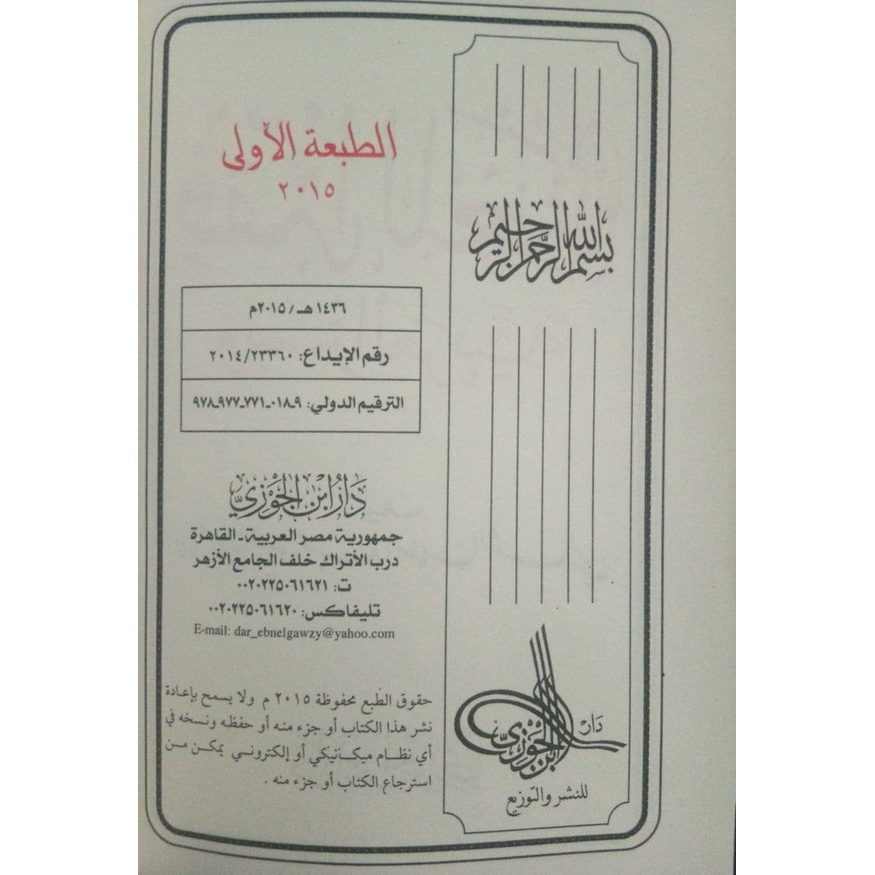 بسم الله الرحمن الرحيم
دار ابن الجوزي
للنشر والتوزيع
الطبعة الأولى
٢٠١٥
١٤٣٦ هـ / ٢٠١٥م
رقم الإيداع: ٢٠١٤/٢٣٣٦٠
الترقيم الدولي: ٩-٠١٨-٧٧١-٩٧٧-٩٧٨
دَارُ ابْن الجَوْزِيّ
جمهورية مصر العربية - القاهرة
درب الأتراك خلف الجامع الأزهر
ت: ٠٠٢٠٢٢٥٠٦١٦٢١
تليفاكس: ٠٠٢٠٢٢٥٠٦١٦٢٠
E-mail: dar_ebnelgawzy@yahoo.com
حقوق الطبع محفوظة ٢٠١٥ م ولا يسمح بإعادة
نشر هذا الكتاب أو جزء منه أو حفظه ونسخه في
أي نظام ميكانيكي أو إلكتروني يمكن من
استرجاع الكتاب أو جزء منه .